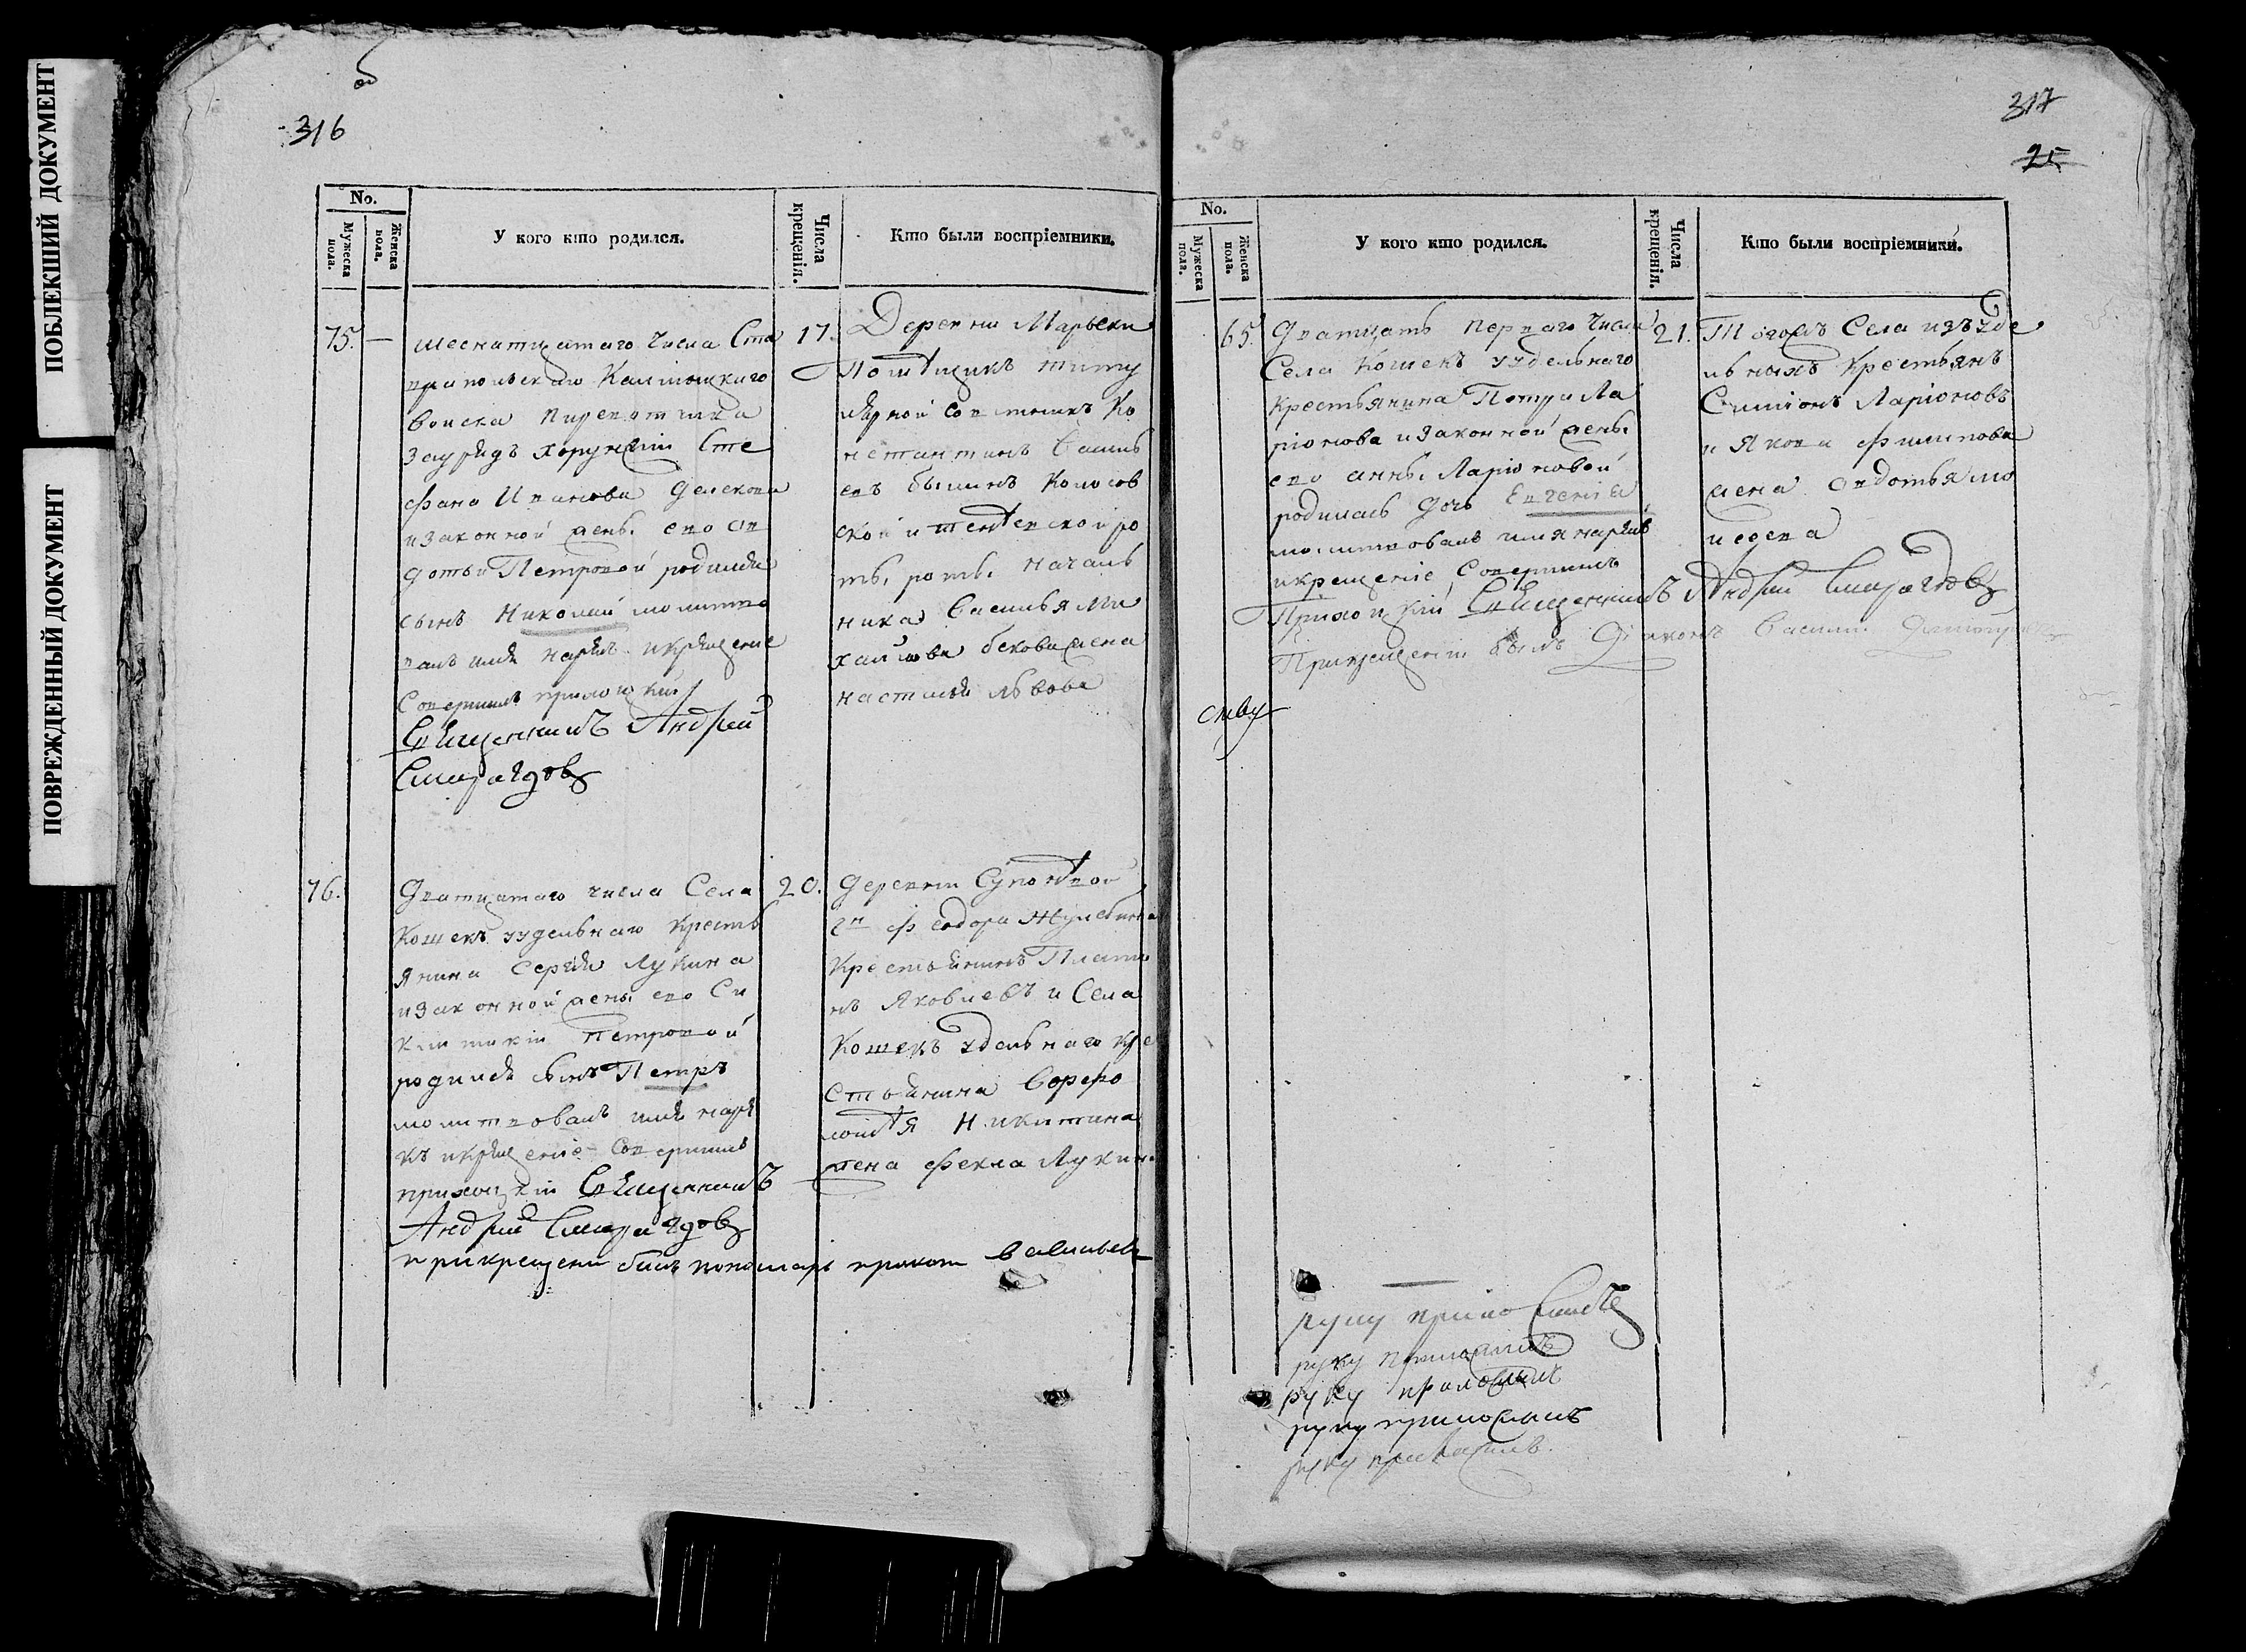 ПОБЛЕКШИЙ ДОКУМЕНТ
ПОВРЕЖДЕННЫЙ ДОКУМЕНТ
об
316
No.
Мужеска пола.
Женска пола.
У кого кто родился.
Числа крещенія.
Кто были воспріемники.
75. — шеснатцатаго числа Ста
вропольскаго Калмыцкого
войска
зауряд хорунжій Сте
фана Иванова
и законной жены его Ов
дотьи Петровой родился
сынъ Николай молитво
валъ имя нарекъ и крещение
Совершилъ приходский
Священникъ Андрей
Смарагдовъ
17. Деревни Марьевки
Помещикъ титу
лярной Советникъ Ко
нстантинъ Василь
евъ
ника Василья Ми
хайлова жена
настасья Львова
76. Дватцатаго числа Села
Кошекъ удельнаго Кресть
янина Сергея Лукина
и законной жены его Си
клитикіи Петровой
родился сынъ Петръ
молитвовалъ имя наре
къ и крещеніе Совершилъ
приходскій Священникъ
Андрей Смарагдовъ
при крещени былъ пономарь Васильевъ
20. Деревни
гн Феодора
Крестьянинъ Плато
нъ Яковлевъ и Села
Кошекъ удельнаго Кре
стьянина Ворфо
ломея Никитина
жена Фекла Лукина
317
25
No.
Мужеска пола.
Женска пола.
У кого кто родился.
Числа крещенія.
Кто были воспріемники.
65. Дватцать перваго Числа
Села Кошекъ удельнаго
Крестьянина Петра Ла
ріонова и законной жены
его анны Ларіоновой
родилась дочь Евгенія
молитвовалъ имя нарекъ
и крещеніе Совершилъ
Приходскій Священникъ Андрей Смарагдовъ
При крещеніи былъ Діаконъ Василій
21. Тогожъ Села изъ уде
льныхъ Крестьянъ
Симіонъ Ларіоновъ
и Якова Филипова
жена Овдотья Мо
исеева
ству
руку приложилъ
руку приложилъ
руку приложилъ
руку приложилъ
руку приложилъ